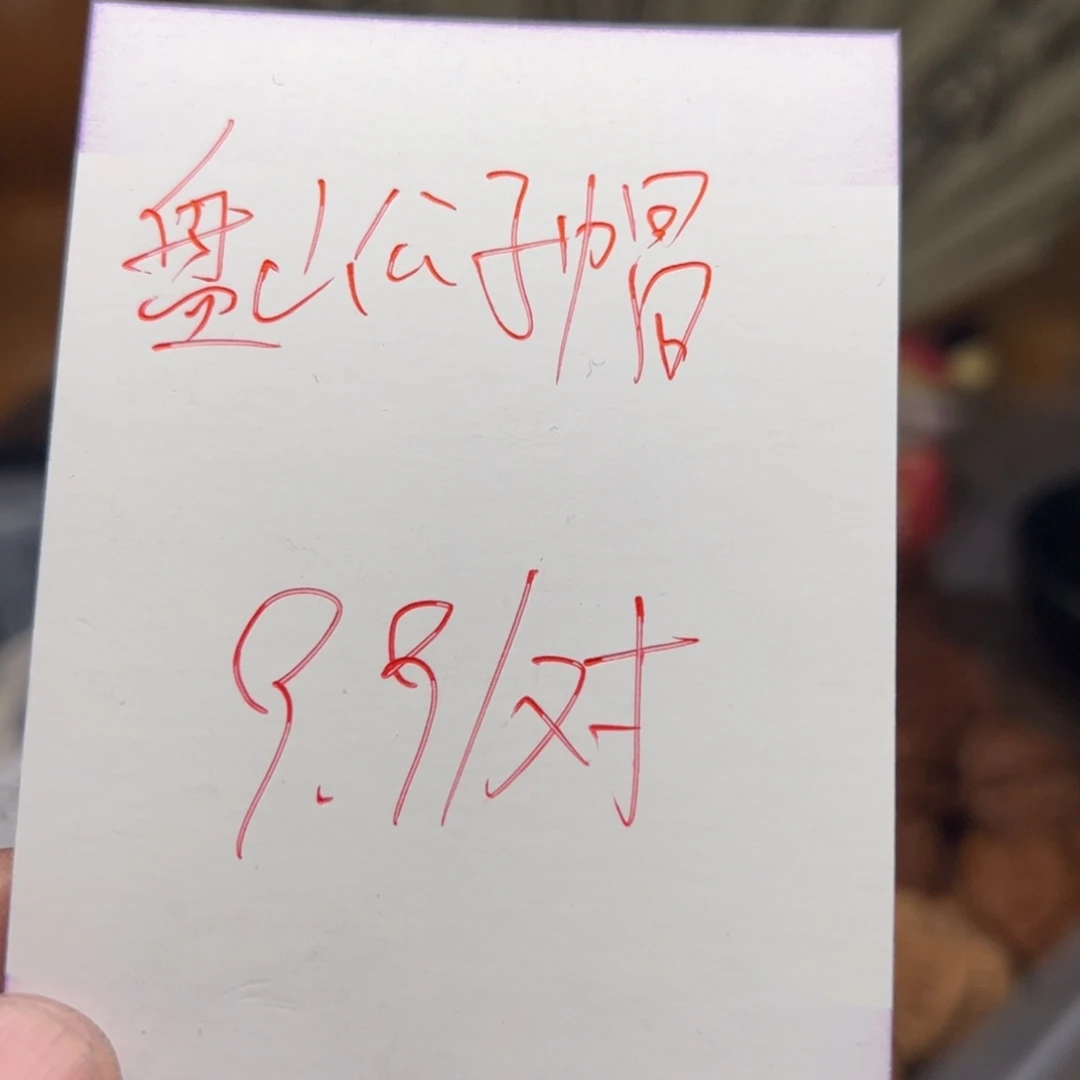 盘山公子帽
9.9/对